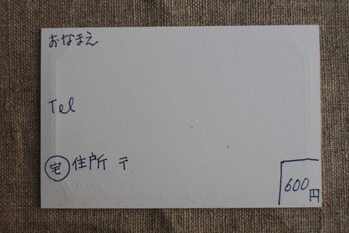 おなまえ
Tel
宅 住所 〒
600円